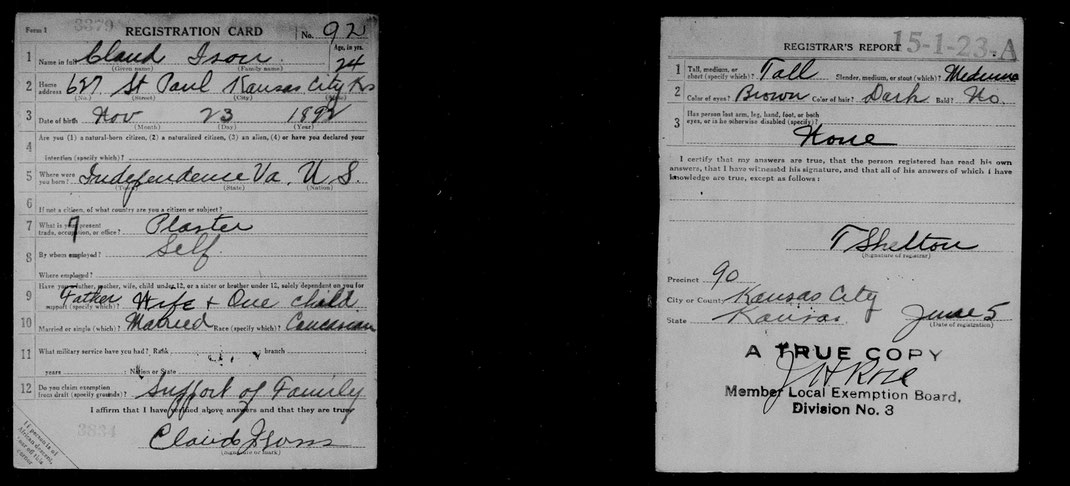 Form 1 3379 REGISTRATION CARD No. 92
1 Name in full Claud Ison Age, in yrs. 24
(Given name) (Family name)
2 Home address 627 St Paul Kansas City Ks
(No.) (Street) (City) (State)
3 Date of birth Nov 23 1892
(Month) (Day) (Year)
4 Are you (1) a natural-born citizen, (2) a naturalized citizen, (3) an alien, (4) or have you declared your
intention (specify which)?
5 Where were you born? Independence Va. U.S.
(Town) (State) (Nation)
6 If not a citizen, of what country are you a citizen or subject?
7 What is your present trade, occupation, or office? 7 Plaster
8 By whom employed? Self
Where employed?
9 Have you a father, mother, wife, child under 12, or a sister or brother under 12, solely dependent on you for
support (specify which)? Father Wife + One child
10 Married or single (which)? Married Race (specify which)? Caucasian
11 What military service have you had? Rank branch
years Nation or State
12 Do you claim exemption from draft (specify grounds)? Support of Family
I affirm that I have verified above answers and that they are true
3834 Claud Isom
(Signature or mark)
If person is of African descent, tear off this corner
REGISTRAR'S REPORT 15-1-23-A
1 Tall, medium, or short (specify which)? Tall Slender, medium, or stout (which)? Medium
2 Color of eyes? Brown Color of hair? Dark Bald? No.
3 Has person lost arm, leg, hand, foot, or both eyes, or is he otherwise disabled (specify)?
None
I certify that my answers are true, that the person registered has read his own
answers, that I have witnessed his signature, and that all of his answers of which I have
knowledge are true, except as follows:
T Shelton
(Signature of registrar)
Precinct 90
City or County Kansas City
State Kansas June 5
(Date of registration)
A TRUE COPY
J H Rose
Member Local Exemption Board,
Division No. 3